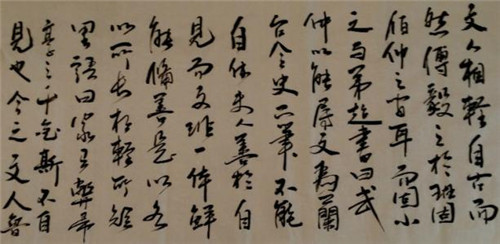 文人相輕自古而
然傅毅之於班固
伯仲之間耳而固小
之與弟超書曰武
仲以能屬文為蘭
台令史下筆不能
自休夫人善於自
見而文非一体鮮
能備善是以各
以所長相輕所短
里語曰家有弊帚
享之千金斯不自
見也今之文人魯